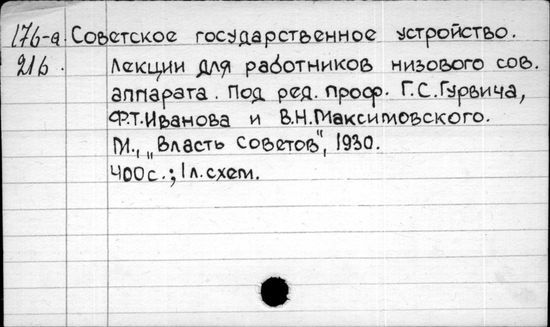 176-а Советское государственное устройство.
216. Лекции для работников низового сов.
аппарата. Под ред. проф. Г.С.Гурвича,
Ф.Т.Иванова и В.Н.Максимовского.
М., „Власть Советов", 1930.
400с.; 1л.схем.